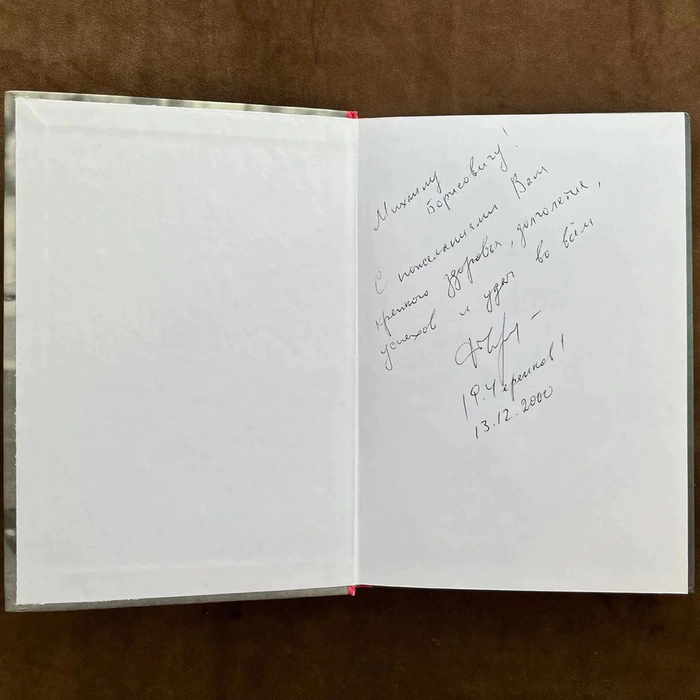 Михаилу
Борисовичу!
С пожеланиями Вам
крепкого здоровья, долголетия,
успехов и удач во всём
/Ф. Черенков/
13.12.2000